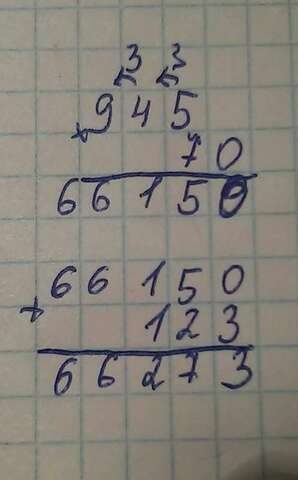 3 3
× 945
70
66150
66150
+ 123
66273